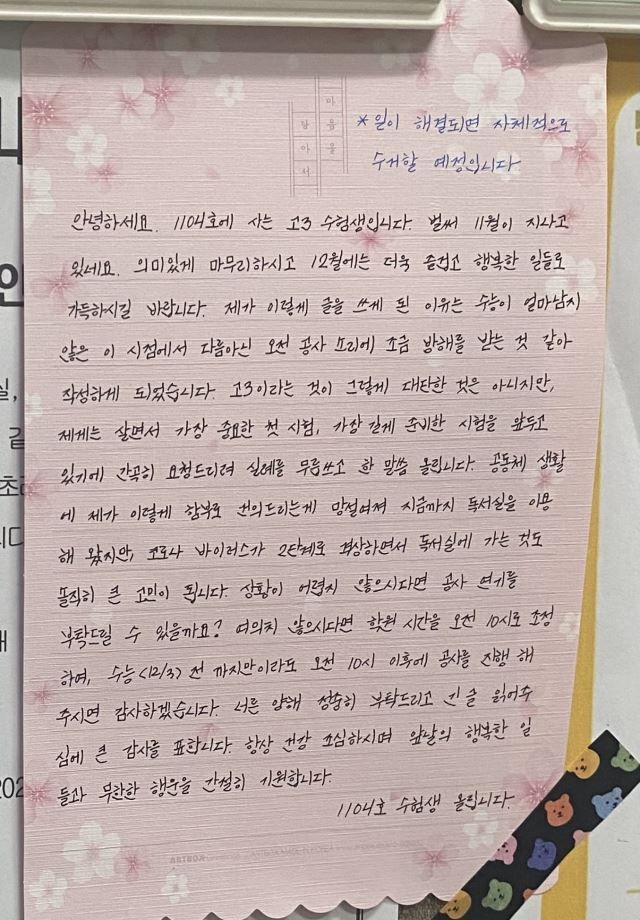 마
음
을
담
아
서
* 일이 해결되면 자체적으로
수거할 예정입니다
안녕하세요. 1104호에 사는 고3 수험생입니다. 벌써 11월이 지나고
있네요. 의미있게 마무리하시고 12월에는 더욱 즐겁고 행복한 일들로
가득하시길 바랍니다. 제가 이렇게 글을 쓰게 된 이유는 수능이 얼마남지
않은 이 시점에서 다름아닌 오전 공사 소리에 조금 방해를 받는 것 같아
작성하게 되었습니다. 고3이라는 것이 그렇게 대단한 것은 아니지만,
제게는 살면서 가장 중요한 첫 시험, 가장 길게 준비한 시험을 앞두고
있기에 간곡히 요청드리려 실례를 무릅쓰고 한 말씀 올립니다. 공동체 생활
에 제가 이렇게 함부로 건의드리는게 망설여져 지금까지 독서실을 이용
해 왔지만, 코로나 바이러스가 2단계로 격상하면서 독서실에 가는 것도
솔직히 큰 고민이 됩니다. 상황이 어렵지 않으시다면 공사 연기를
부탁드릴 수 있을까요? 여의치 않으시다면 학원 시간을 오전 10시로 조정
하여, 수능 (12/3) 전 까지만이라도 오전 10시 이후에 공사를 진행 해
주시면 감사하겠습니다. 너른 양해 정중히 부탁드리고 긴 글 읽어주
심에 큰 감사를 표합니다. 항상 건강 조심하시며 앞날의 행복한 일
들과 무한한 행운을 간절히 기원합니다.
1104호 수험생 올립니다.